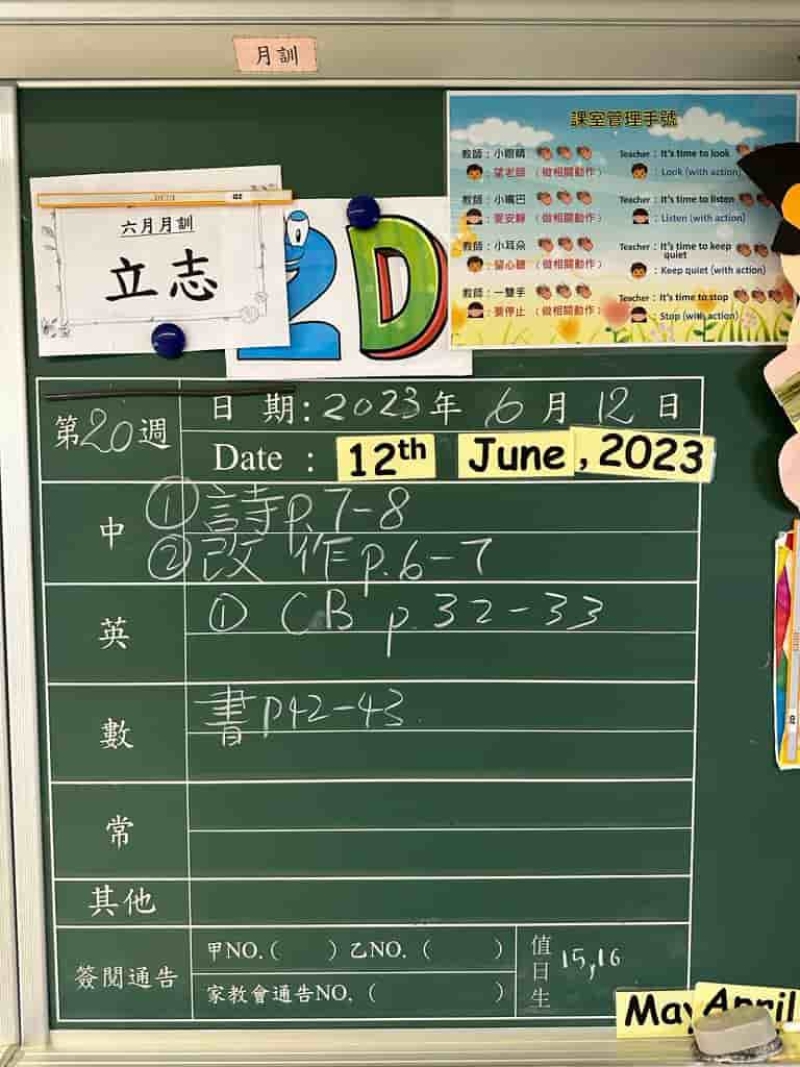 月訓
六月月訓
立志
2D
課室管理手號
教師：小眼睛 Teacher : It's time to look
：望老師 （做相關動作） : Look (with action)
教師：小嘴巴 Teacher : It's time to listen
：要安靜 （做相關動作） : Listen (with action)
教師：小耳朵 Teacher : It's time to keep quiet
：留心聽 （做相關動作） : Keep quiet (with action)
教師：一雙手 Teacher : It's time to stop
：要停止 （做相關動作） : Stop (with action)
第20週
日 期：2023年 6月 12日
Date : 12th June, 2023
中
① 詩p.7-8
② 改 作p.6-7
英
① CB p.32-33
數
書p42-43
常
其他
簽閱通告
甲NO.( ) 乙NO.( )
家教會通告NO.( )
值日生 15,16
May April